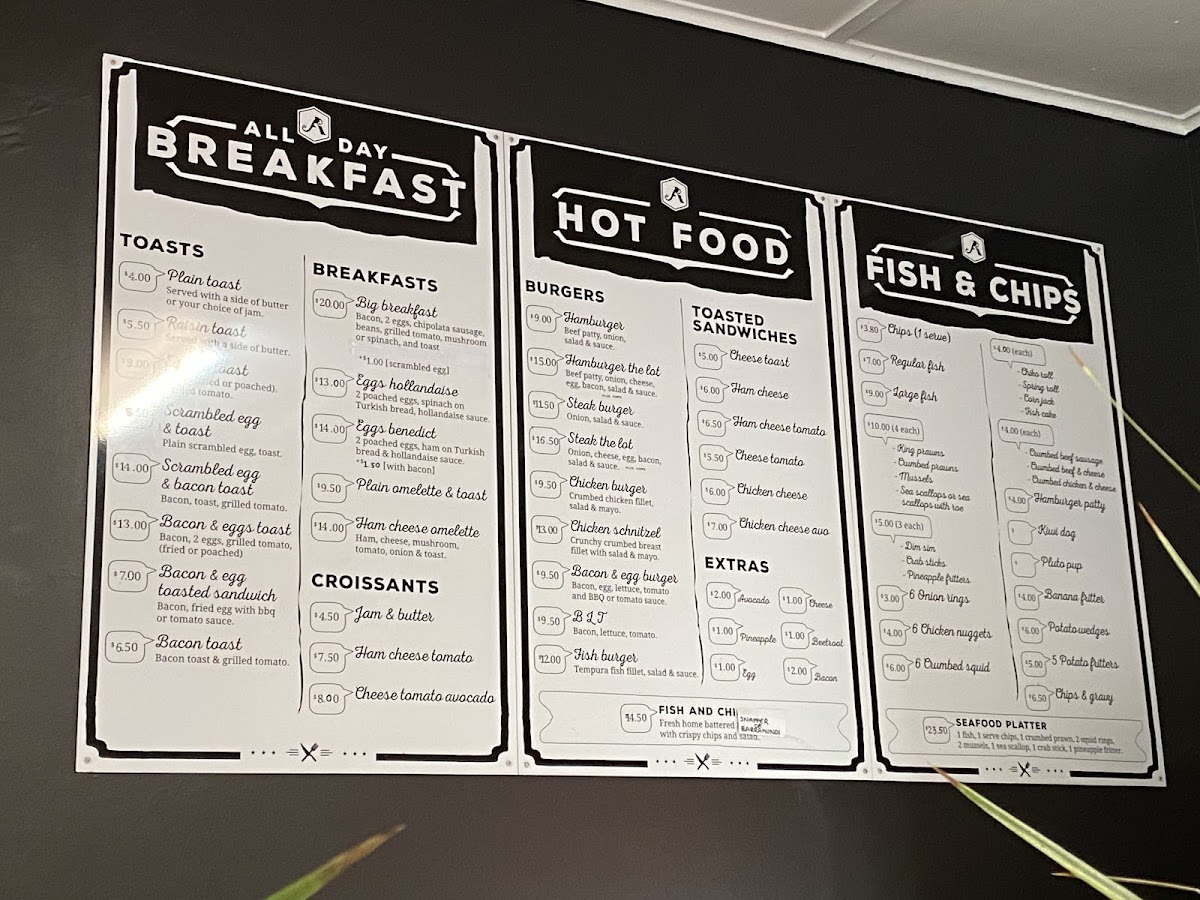 ALL DAY
BREAKFAST
TOASTS
$4.00 Plain toast
Served with a side of butter
or your choice of jam.
$5.50 Raisin toast
Served with a side of butter.
$9.00 toast
or poached).
tomato.
Scrambled egg
& toast
Plain scrambled egg, toast.
$14.00 Scrambled egg
& bacon toast
Bacon, toast, grilled tomato.
$13.00 Bacon & eggs toast
Bacon, 2 eggs, grilled tomato,
(fried or poached)
$7.00 Bacon & egg
toasted sandwich
Bacon, fried egg with bbq
or tomato sauce.
$6.50 Bacon toast
Bacon toast & grilled tomato.
BREAKFASTS
$20.00 Big breakfast
Bacon, 2 eggs, chipolata sausage,
beans, grilled tomato, mushroom
or spinach, and toast
+$1.00 [scrambled egg]
$13.00 Eggs hollandaise
2 poached eggs, spinach on
Turkish bread, hollandaise sauce.
$14.00 Eggs benedict
2 poached eggs, ham on Turkish
bread & hollandaise sauce.
+$1.50 [with bacon]
$9.50 Plain omelette & toast
$14.00 Ham cheese omelette
Ham, cheese, mushroom,
tomato, onion & toast.
CROISSANTS
$4.50 Jam & butter
$7.50 Ham cheese tomato
$8.00 Cheese tomato avocado
HOT FOOD
BURGERS
$9.00 Hamburger
Beef patty, onion,
salad & sauce.
$15.00 Hamburger the lot
Beef patty, onion, cheese,
egg, bacon, salad & sauce.
$11.50 Steak burger
Onion, salad & sauce.
$16.50 Steak the lot
Onion, cheese, egg, bacon,
salad & sauce.
$9.50 Chicken burger
Crumbed chicken fillet,
salad & mayo.
$13.00 Chicken schnitzel
Crunchy crumbed breast
fillet with salad & mayo.
$9.50 Bacon & egg burger
Bacon, egg, lettuce, tomato
and BBQ or tomato sauce.
$9.50 BLT
Bacon, lettuce, tomato.
$12.00 Fish burger
Tempura fish fillet, salad & sauce.
TOASTED
SANDWICHES
$5.00 Cheese toast
$6.00 Ham cheese
$6.50 Ham cheese tomato
$5.50 Cheese tomato
$6.00 Chicken cheese
$7.00 Chicken cheese avo
EXTRAS
$2.00 Avocado $1.00 Cheese
$1.00 Pineapple $1.00 Beetroot
$1.00 Egg $2.00 Bacon
$14.50 FISH AND CHI
Fresh home battered
with crispy chips and salad.
SNAPPER
OR
BARRAMUNDI
FISH & CHIPS
$3.80 Chips (1 serve)
$7.00 Regular fish
$9.00 Large fish
$10.00 (4 each)
- King prawns
- Crumbed prawns
- Mussels
- Sea scallops or sea
scallops with roe
$5.00 (3 each)
- Dim sim
- Crab sticks
- Pineapple fritters
$3.00 6 Onion rings
$4.00 6 Chicken nuggets
$6.00 6 Crumbed squid
$4.00 (each)
- Chiko roll
- Spring roll
- Cornjack
- Fish cake
$4.00 (each)
- Crumbed beef sausage
- Crumbed beef & cheese
- Crumbed chicken & cheese
$4.00 Hamburger patty
Kiwi dog
Pluto pup
$4.00 Banana fritter
$6.00 Potato wedges
$5.00 5 Potato fritters
$6.50 Chips & gravy
$23.50 SEAFOOD PLATTER
1 fish, 1 serve chips, 1 crumbed prawn, 2 squid rings,
2 mussels, 1 sea scallop, 1 crab stick, 1 pineapple fritter.